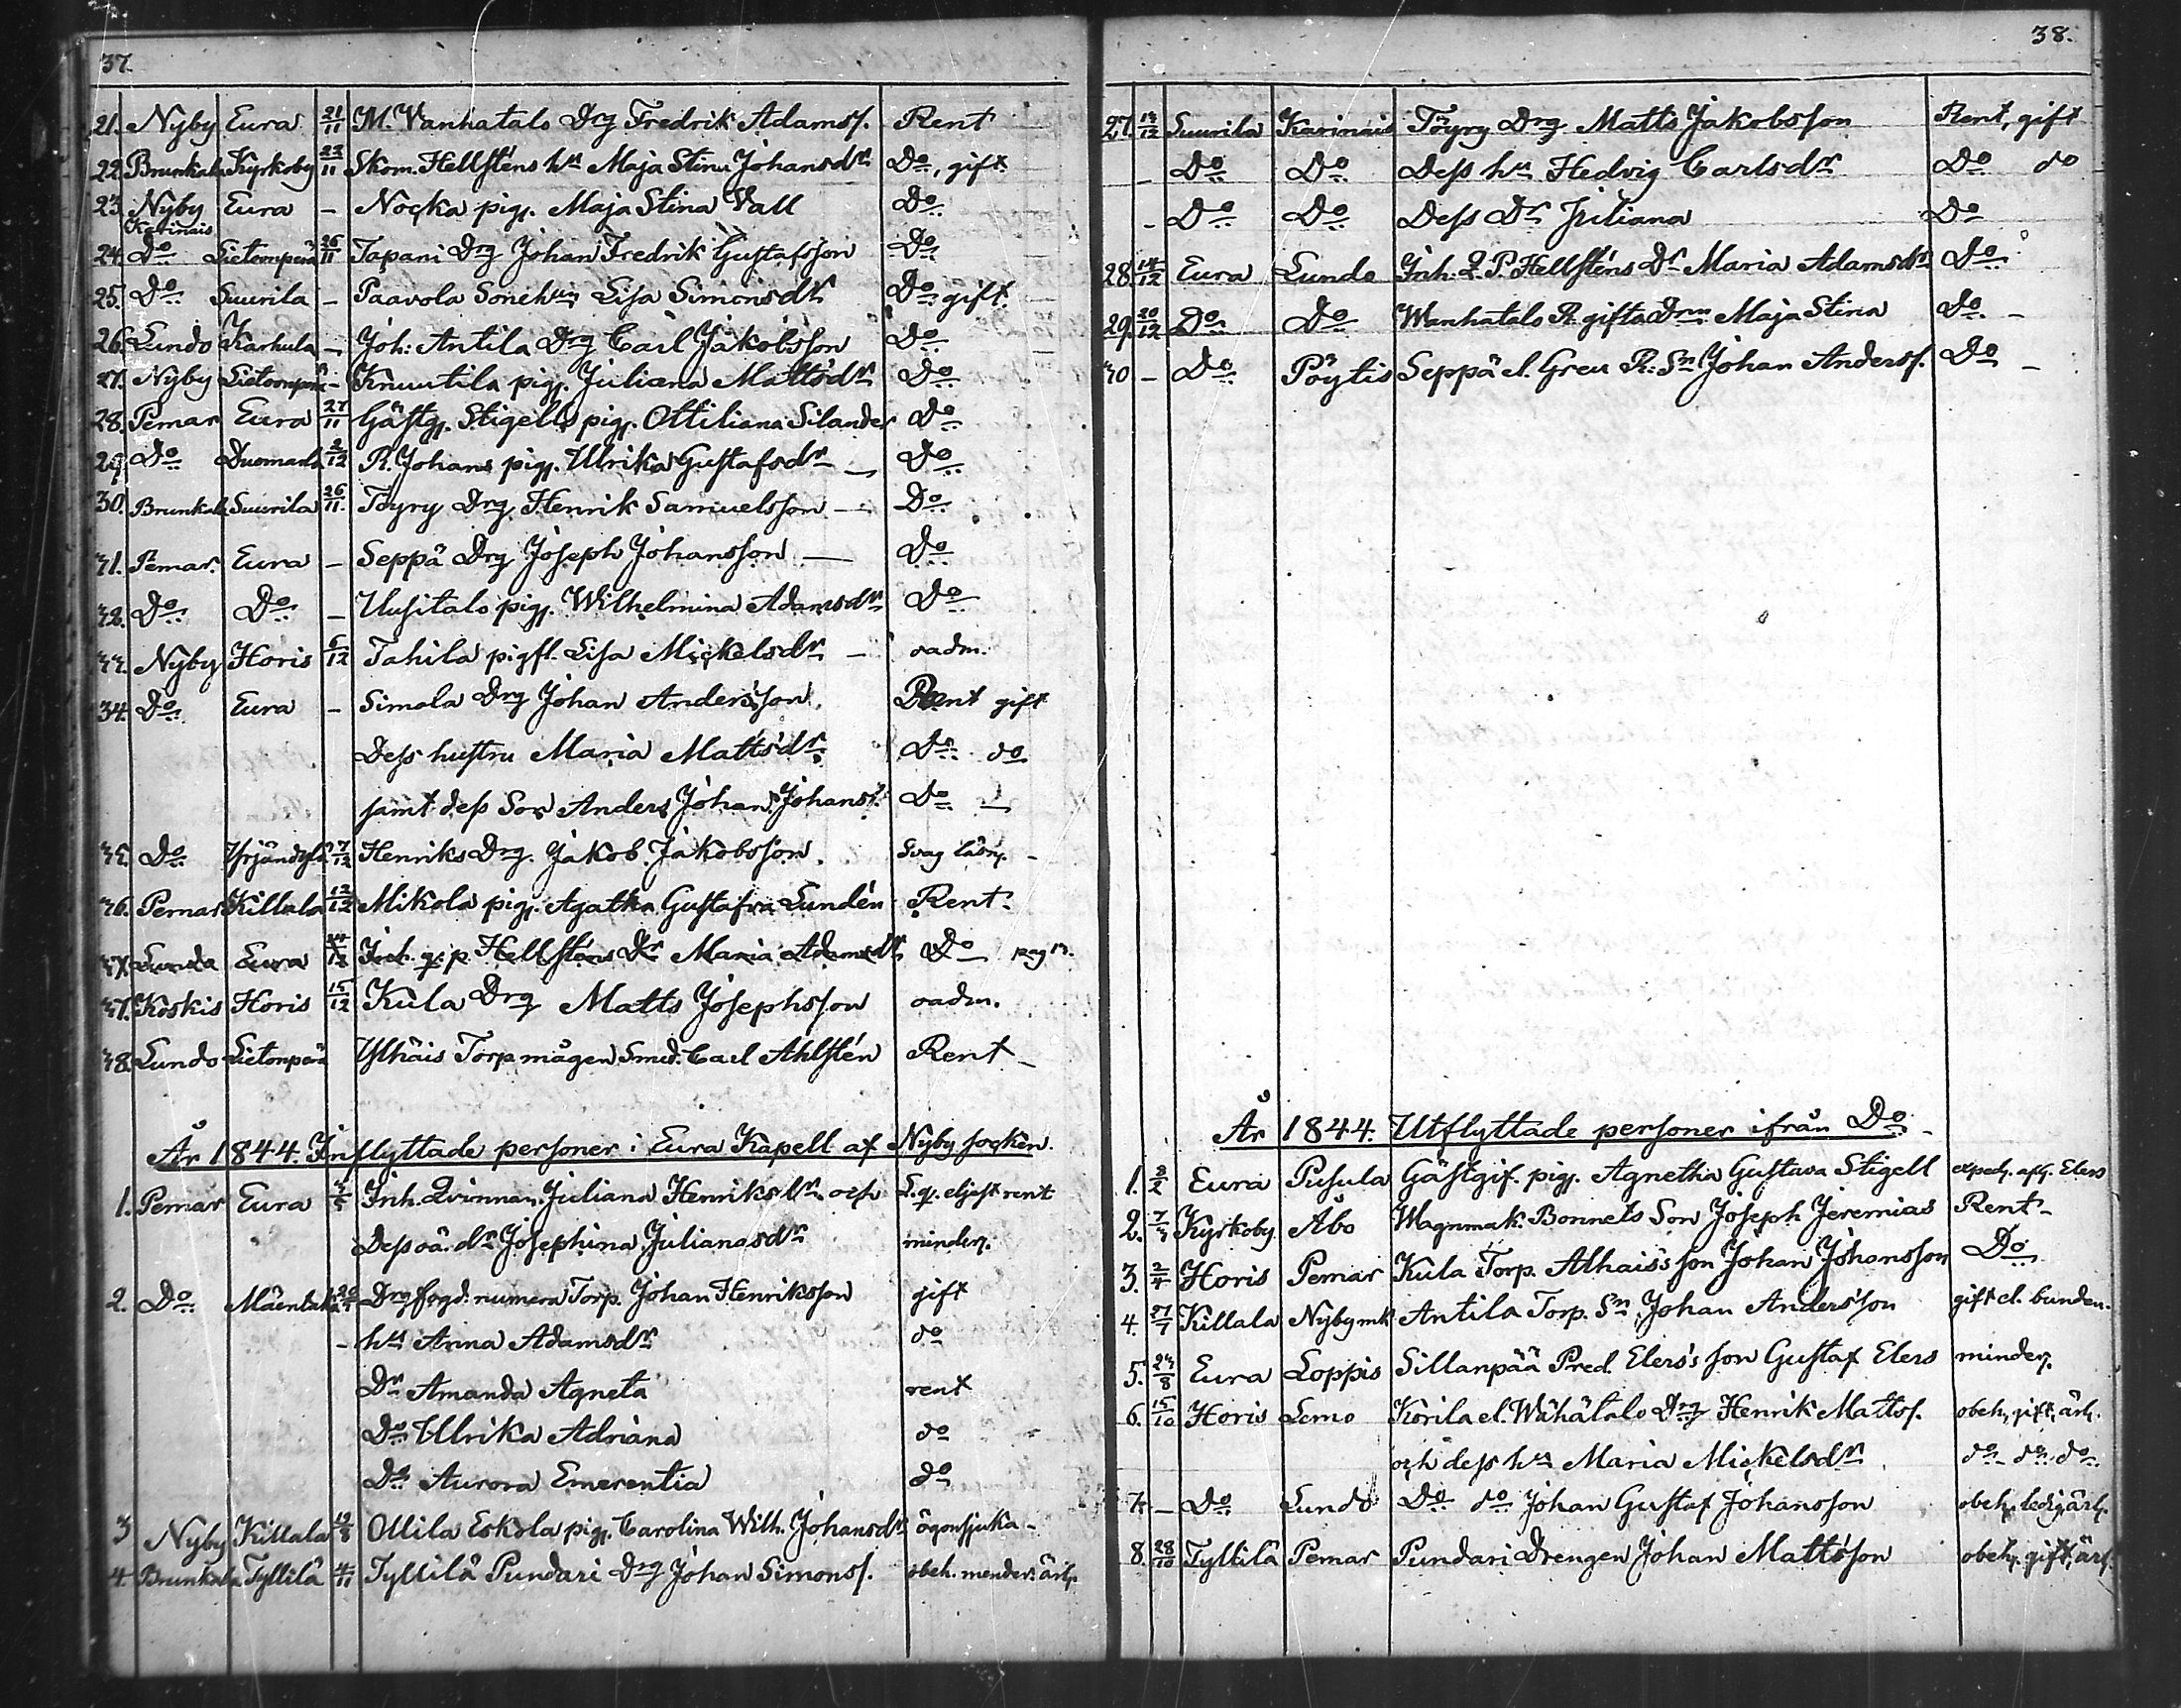 37.
21. Nyby Eura 21/11 M. Vanhatalo Drg Fredrik Adamss. Rent
22. Brunkala Kyrkoby 23/11 Skom. Hellsténs hu Maja Stina Johansdr Do, gift.
23. Nyby Eura – Nocka pig. Maja Stina Vall Do
Karinais
24. Do Lietompera 26/11 Tapani Drg Johan Fredrik Gustafsson Do
25. Do Suurila – Paavola Sonehu Lisa Simonsdr Do gift.
26. Lundo Karhula – Joh: Antila Drg Carl Jakobsson Do
27. Nyby Lietompera – Knuutila pig. Juliana Mattsdr Do
28. Pemar Eura 27/11 Gästg. Stigells pig. Ottiliana Silander Do
29. Do Duomala 2/12 R. Johans pig. Ulrika Gustafsdr – Do
30. Brunkala Suurila 26/11. Töyry Drg Henrik Samuelsson – Do
31. Pemar. Eura – Seppä Drg Joseph Johansson – Do
32. Do Do – Uusitalo pig. Wilhelmina Adamsdr Do
33. Nyby Horis 6/12 Tahila pigfl. Lisa Mickelsdr – oadm.
34. Do Eura – Simola Drg Johan Andersson. Rent gift
Dess hustru Maria Mattsdr Do do
samt dess Son Anders Johan Johans. Do –
35. Do 7/12 Henriks Drg. Jakob Jakobsson. Svag läsn. –
36. Pemar Killala 12/12 Mikola pig. Agatha Gustafva Lundén Rent.
37. Lundo Eura 14/12 Inh. q. p. Hellsténs Dr Maria Adamsdr Do
37. Koskis Horis 15/12 Kula Drg Matts Josephsson oadm.
38. Lundo Lietonperä Ylhäis Torp mågen Smed. Carl Ahlstén Rent –
År 1844. Inflyttade personer i Eura Kapell af Nyby socken.
1. Pemar Eura Inh. Qvinnan. Juliana Henriksdr och L. q. eljest rent
Dess oä. dr Josephina Julianasdr minder.
2. Do Mäentaka Drg fogd. numera Torp. Johan Henriksson gift
– hu Anna Adamsdr do
Dr Amanda Agneta rent
Do Ulrika Adriana do
Do Aurora Emerentia do
3 Nyby Killala 19/8 Ollila Eskola pig. Carolina Wilh. Johansdr ögonsjuka –
4. Brunkala Tyllilä 4/11 Tyllilä Pundari Drg Johan Simonss. obeh. minder. ärl.
38.
27. 14/12 Suurila Karinais Töyry Drg Matts Jakobsson Rent, gift
– Do Do Dess hu Hedvig Carlsdr Do do
– Do Do Dess Dr Juliana Do
28. 14/12 Eura Lundo Inh. Q. P. Hellsténs Dr Maria Adamsdr Do
29. 20/12 Do Do Wanhatalo R. gifta Drn Maja Stina Do –
30 – Do Pöytis Seppä el. Greu R: Sn Johan Anderss. Do –
År 1844. Utflyttade personer ifrån Do –
1. 3/2 Eura Pusula Gästgif. pig. Agnetha Gustava Stigell exped. af Elers
2. 7/3 Kyrkoby Åbo Wagnmak. Bonnets Son Joseph Jeremias Rent –
3. 2/4 Horis Pemar Kula Torp. Alhais's son Johan Johansson Do
4. 27/7 Killala Nyby mk Antila Torp. Sn Johan Andersson gift el. bunden.
5. 24/8 Eura Loppis Sillanpää Pred. Elers's son Gustaf Elers minder.
6. 15/10 Horis Lemo Korila el. Wähätalo Drg Henrik Mattss. obeh. gift, ärl.
och dess hu Maria Mickelsdr do do do
7. – Do Lundo Do do Johan Gustaf Johansson obeh. ledig, ärl.
8. 28/10 Tyllilä Pemar Pundari Drengen Johan Mattsson obeh. gift, ärl.